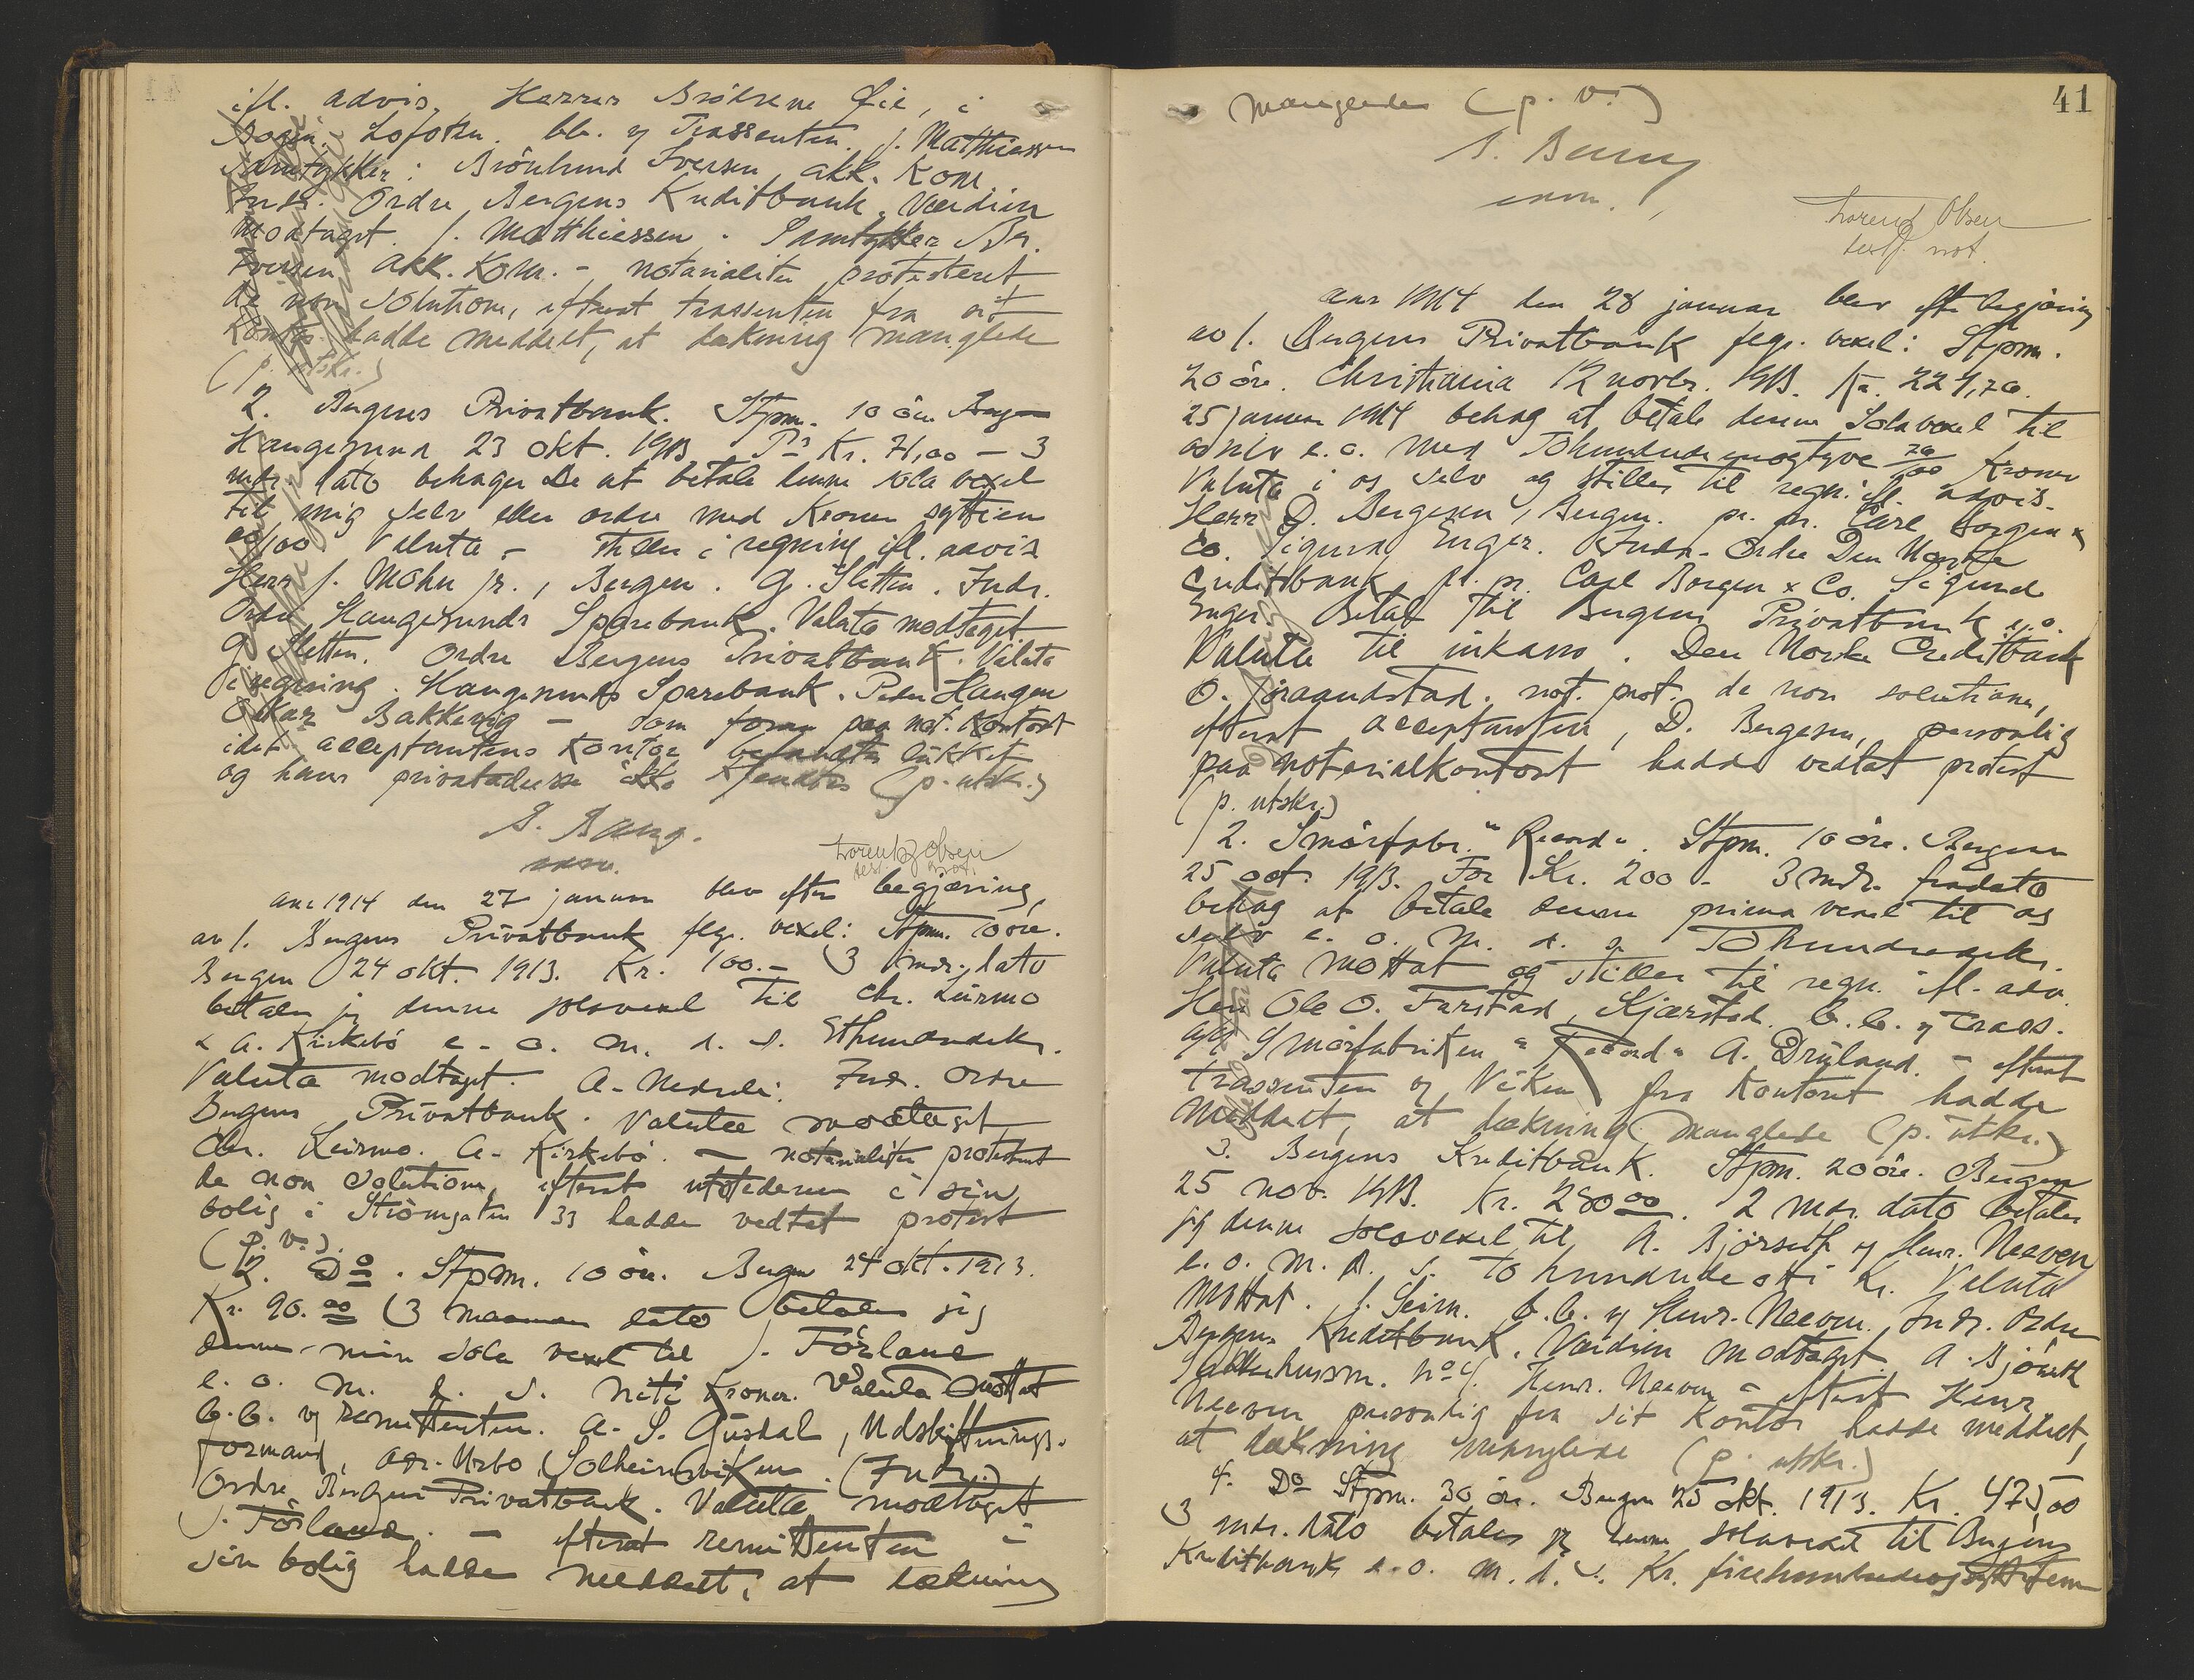 ifl. advis. Herrer Brödrene Öie, i
Lofoten. bl. og Trassenten. J. Matthiessen
Samtykker: Brönlund Iversen, akk. Kom
Inds. Ordre Bergens Kreditbank. Værdien
Motaget. J. Matthiessen. Samtykker Br.
Iversen akk. Kom. - notarialiter protesteret
de non solutione, efterat trassenten fra sit
kontor hadde meddelt, at dækning manglede
(p. utskr.)
2. Bergens Privatbank. Stpm. 10 öre
Haugesund 23 okt. 1913 Pr Kr. 71,00 - 3
mdr. dato behager De at betale denne sola vexel
til mig selv eller ordre med Kroner sytti en
00/100 Valuta - stilles i regning ifl. advis
Herr J. Mohn jr., Bergen. G. Sletten. Inds.
Ordre Haugesunds Sparebank. Valuta modtaget
G. Sletten. Ordre Bergens Privatbank. Valuta
i regning. Haugesunds Sparebank. Peder Haugen
Oskar Bakkevig - som foran paa not. kontoret
idet acceptantens kontor befandtes lukket
og hans privatadresse ikke kjendtes (p. utskr.)
B. Bang.
Lorentz Olsen
test. not.
aar 1914 den 27 januar blev efter begjæring
av 1. Bergens Privatbank flg. vexel: Stpm. 10 öre.
Bergen 24 okt. 1913. Kr. 100.- 3 mdr. dato
betaler jeg denne solavexel til Chr. Leirmo
& A. Kirkebö e. o. m. d. S. Ethundredekr.
Valuta modtaget. A. Nedrelid. Ind. Ordre
Bergens Privatbank. Valuta modtaget
Chr. Leirmo. A. Kirkebö. - notarialiter protesteret
de non solutione, efterat utstederen i sin
bolig i Strömgaten 33 hadde vedtat protest
(p. v.).
2. Do. Stpm. 10 öre. Bergen 24 okt. 1913.
Kr. 90.00 3 maaneder dato betaler jeg
denne min sola vexel til J. Förland
e. o. m. d. S. niti Kroner. Valuta mottat
b. b. og Remittenten. A. S. Gusdal, Udskiftnings-
formand, adr. Solheimsviken. (Inds.)
Ordre Bergens Privatbank. Valuta modtaget
J. Förland. - efterat remittenten i
sin bolig hadde meddelt, at dækning
41
manglede (p. v.)
B. Bang
Lorentz Olsen
test. not.
aar 1914 den 28 januar blev efter begjæring
av 1. Bergens Privatbank flg. vexel: Stpm.
20 öre. Christiania 12 novbr. 1913. Kr. 221,70.
25 januar 1914 behag at betale denne Solavexel til
os selv e. o. med Tohundrede enogtyve 70/100 Kroner
Valuta i os selv og stilles til regn. ifl. advis.
Herr D. Bergesen, Bergen. pr. pr. Carl Borgen &
Co. Sigurd Enger. Inds. Ordre Den Norske
Creditbank. pr. pr. Carl Borgen & Co. Sigurd
Enger. Betal til Bergens Privatbank e. o.
Valuta til inkasso. Den Norske Creditbank
not. prot. de non solutione,
efterat acceptanten, D. Bergesen, personlig
paa notarialkontoret hadde vedtat protest
(p. utskr.)
2. Smörfabr. "Record". Stpm. 10 öre. Bergen
25 oct. 1913. For Kr. 200 - 3 mdr. fra dato
behag at betale denne prima vexel til os
selv e. o. m. d. S. Tohundredekr.
Valuta mottat og stilles til regn. ifl. adv.
Herr Ole O. Farstad, Kjærstad. b. b. og Trass.
Smörfabriken "Record" A. Dröland. - efterat
trassenten og Viken fra kontoret hadde
meddelt, at dækning manglede (p. utskr.)
3. Bergens Kreditbank. Stpm. 20 öre. Bergen
25 nov. 1913. Kr. 280 00. 2 mdr. dato betaler
jeg denne solavexel til A. Bjørseth og Henr. Neeven
e. o. m. d. S. to hundrede otti Kr. Valuta
mottat. J. Seim. b. b. og Henr. Neeven. Inds. Ordre
Bergens Kreditbank. Værdien modtaget. A. Bjørseth
No 4. Henr. Neeven - efterat Henr.
Neeven personlig fra sit kontor hadde meddelt,
at dækning manglede (p. utskr.)
4. Do Stpm. 30 öre. Bergen 25 okt. 1913. Kr. 475,00
3 mdr. dato betaler jeg denne solavexel til Bergens
Kreditbank e. o. m. d. S. Kr. firehundredeogsyttifem